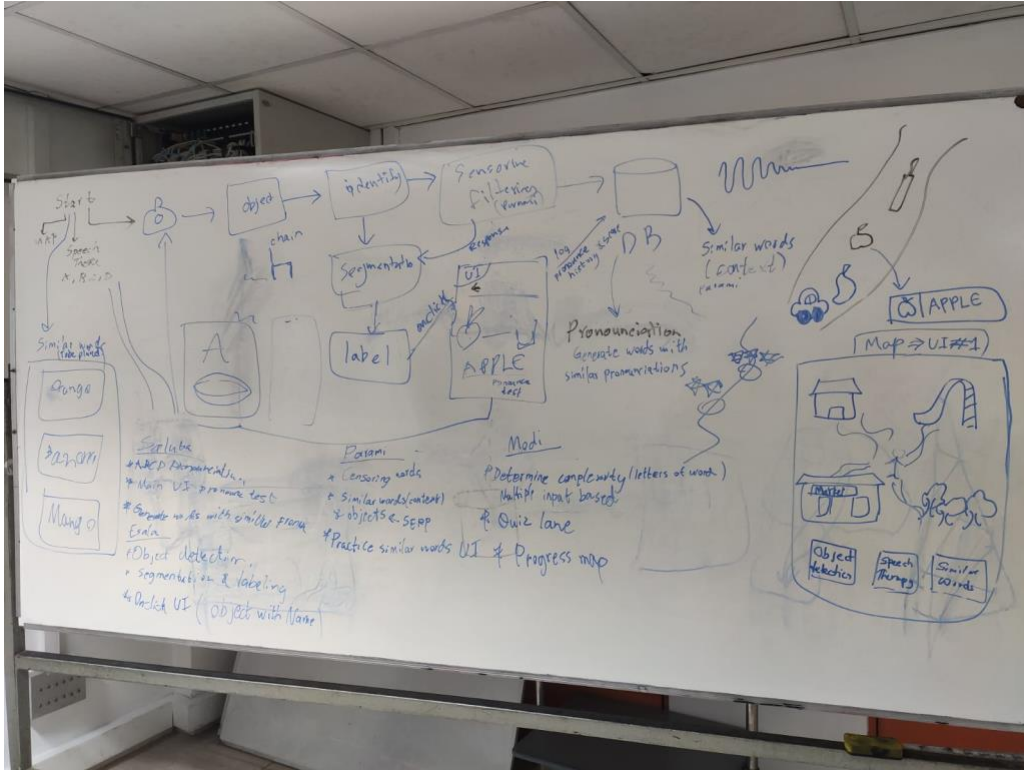 Start
MAP
Speech
A, B..., D
object
identify
Sensorive
filtering
(Parami)
chain
Segmentatn
Response
label
onclick
UI
APPLE
Pronounce
test
A
log
history
DB
Similar words
(context)
Parami
Pronounciation
Generate words with
similar pronunciations
APPLE
Map → UI #1
Market
Object
detection
Speech
Therapy
Similar
Words
Similar words
Mango
* Main UI pronounce test
* Generate words with similar
Object detection
segmentation & labeling
Onclick UI (object with Name)
Parami
* Censoring words
* Similar words (context)
& objects
* Practice similar words UI
Modi
* Determine complexity (letters of word)
Multiple input based
* Quiz lane
* Progress map